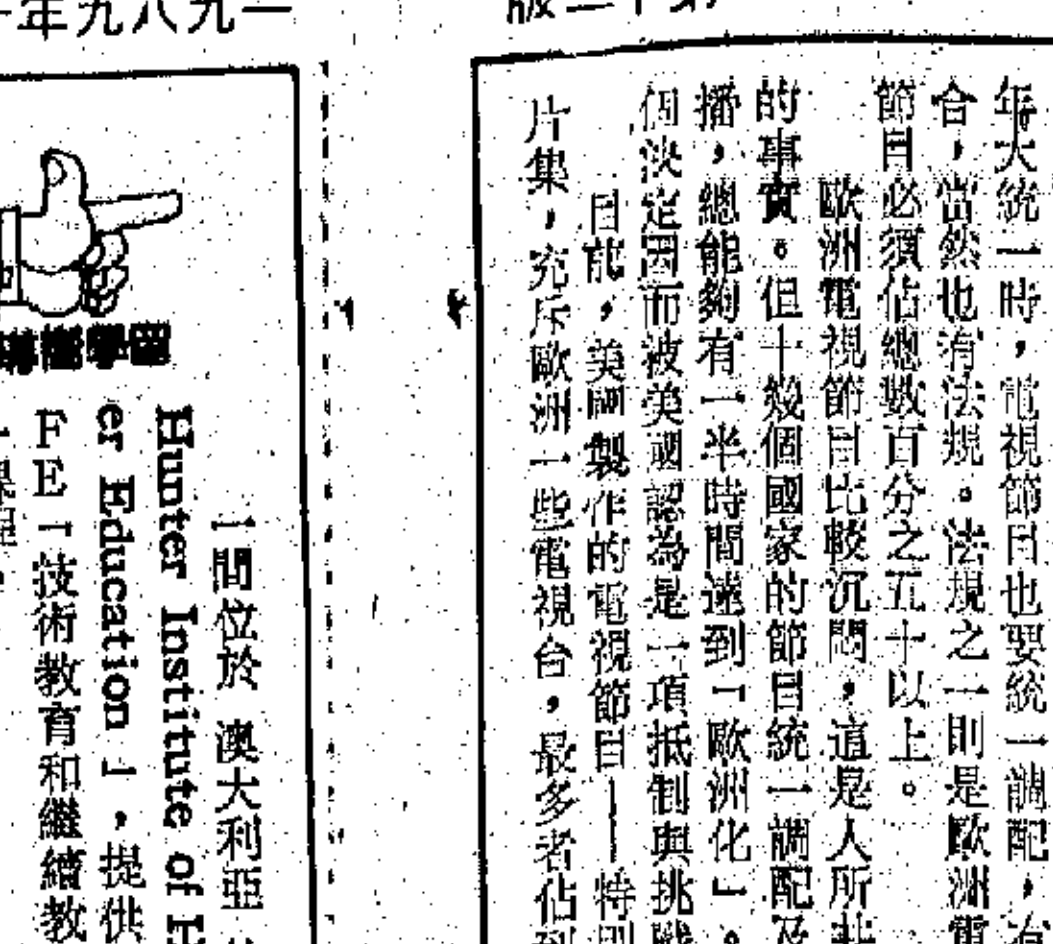 年大統一時，電視節目也要統一調配，
合，當然也有法規。法規之一則是歐洲電
節目必須佔總數百分之五十以上。
歐洲電視節目比較沉悶，這是人所共
的事實。但十幾個國家的節目統一調配及
播，總能夠有一半時間達到「歐洲化」。
個決定因而被美國認為是一項抵制與挑戰
目前，美國製作的電視節目——特別
片集，充斥歐洲一些電視台，最多者佔到
一九八九年
一間位於 澳大利亞
Hunter Institute of H
er Education 」，提供
FE「技術教育和繼續教